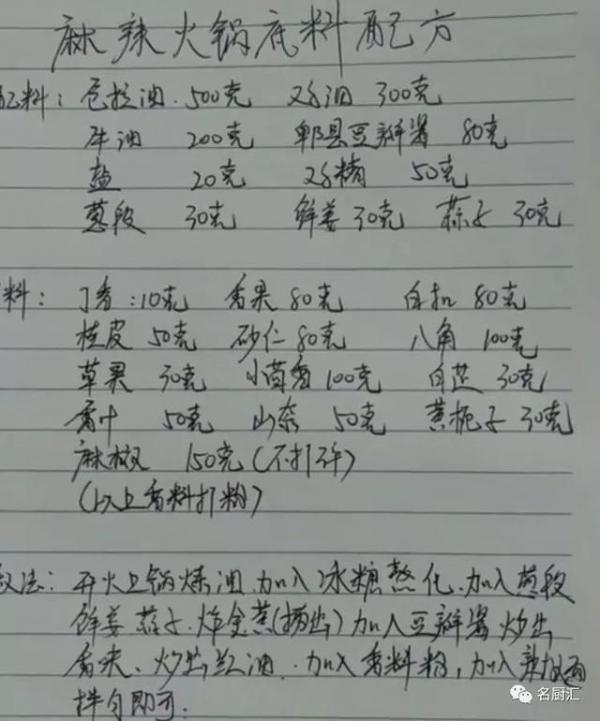 麻辣火锅底料配方
配料：色拉油 500克 鸡油 300克
牛油 200克 郫县豆瓣酱 80克
盐 20克 鸡精 50克
葱段 30克 鲜姜 30克 蒜子 30克
料：丁香：10克 香果 80克 白扣 80克
桂皮 50克 砂仁 80克 八角 100克
草果 30克 小茴香 100克 白芷 30克
香叶 50克 山奈 50克 黄栀子 30克
麻椒 150克（不打碎）
（以上香料打粉）
做法：开火上锅炼油.加入冰糖熬化.加入葱段
鲜姜 蒜子.炸金黄(捞出)加入豆瓣酱 炒出
香味、炒出红油.加入香料粉，加入辣椒面
拌匀即可.
名厨汇